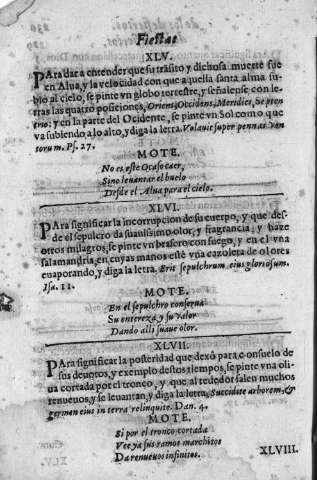 Fiestas
XLV.
PAra dar a entender que su trāsito y dichosa muerte fue
en Alua, y la velocidad con que aquella santa alma su-
bio al cielo, se pinte vn globo terrestre, y señalense con le-
tras las quatro posiciones, Oriens, Occidens, Meridies, Septen
trio: y en la parte del Ocidente, se pinte vn Sol como que
va subiendo a lo alto, y diga la letra. Volauit super pennas Ven
torum. Ps. 27.
MOTE.
No es este Ocaso caer,
Sino leuantar el buelo
Desde el Alua para el cielo.
XLVI.
PAra significar la incorrupcion de su cuerpo, y que des-
de el sepulcro da suauissimo olor, y fragrancia, y haze
otros milagros, se pinte vn brasero con fuego, y en el vna
salamandria, en cuyas manos estè vna cazoleta de olores
euaporando, y diga la letra. Erit sepulchrum eius gloriosum.
Isa. 11.
MOTE.
En el sepulchro conserua
Su entereza, y su valor
Dando alli suaue olor.
XLVII.
PAra significar la posteridad que dexò para consuelo de
sus deuotos, y exemplo destos tiempos, se pinte vna oli
ua cortada por el tronco, y que al rededor salen muchos
renueuos, y se leuantan, y diga la letra, Succidite arborem, &
germen eius in terra relinquite. Dan. 4.
MOTE.
Si por el tronco cortada
Vee ya sus ramos marchitos
Da renueuos infinitos.
XLVIII.